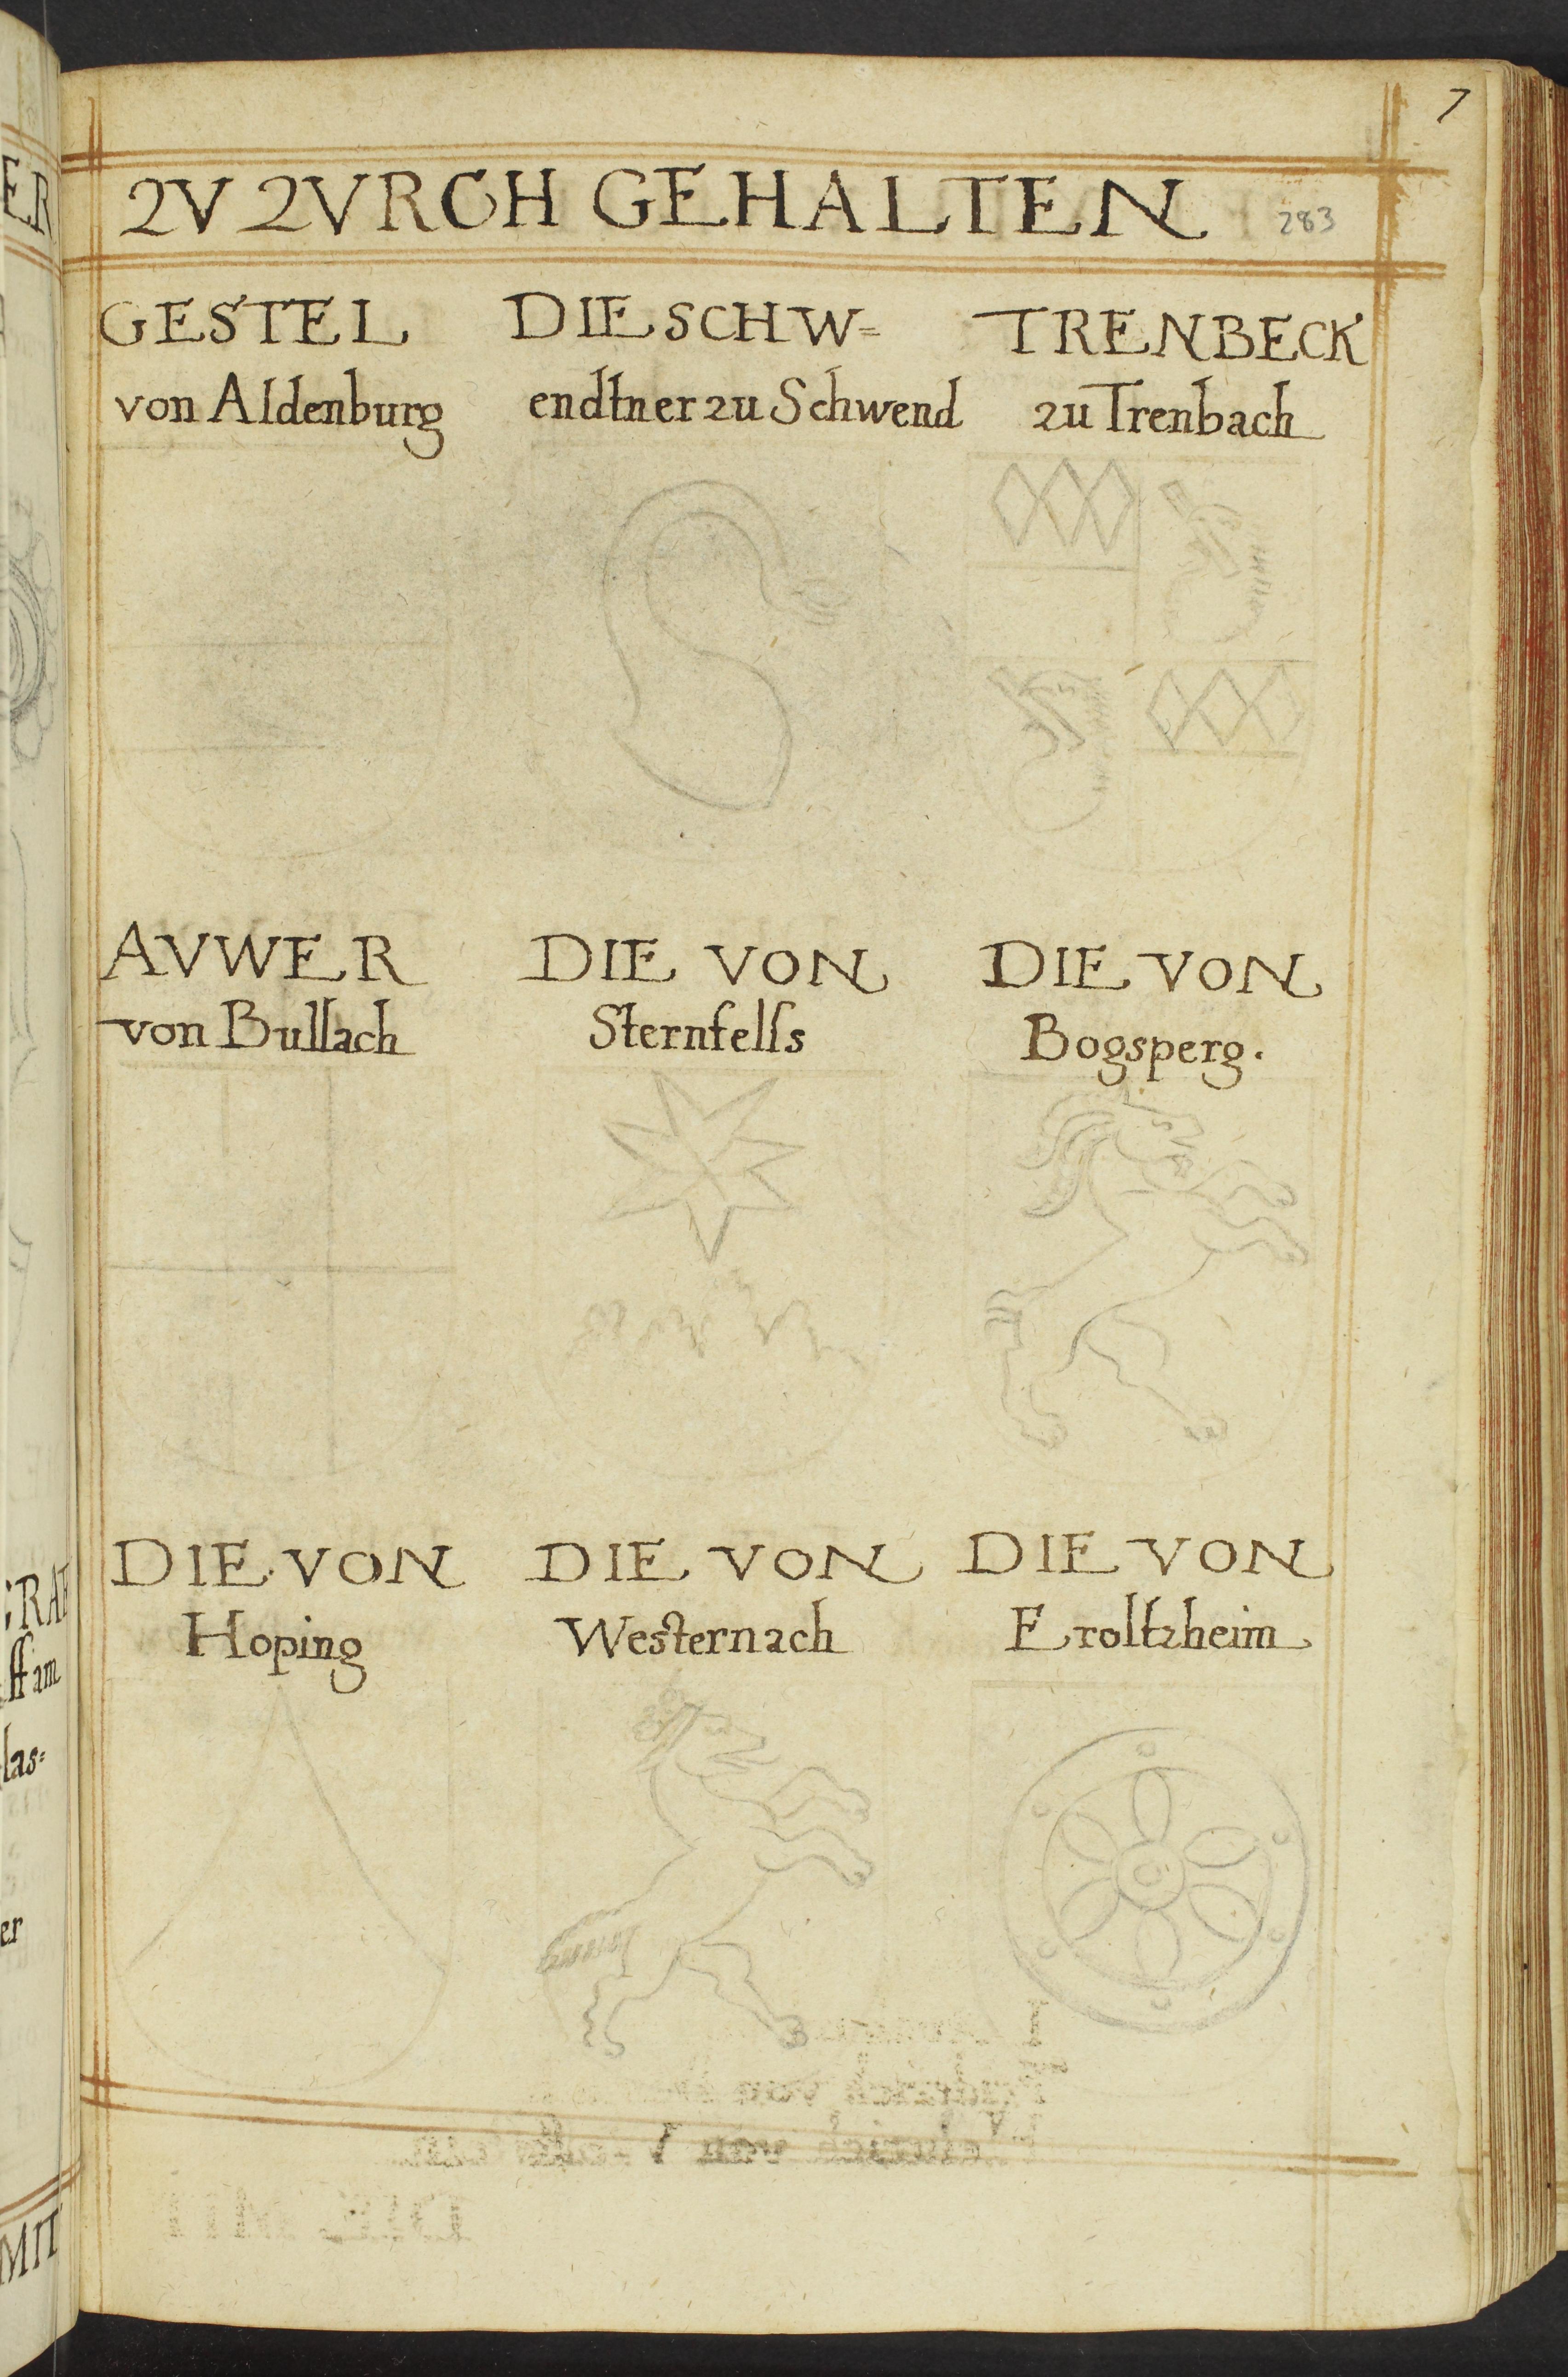 7
ZV ZVRCH GEHALTEN
283
GESTEL
von Aldenburg
DIE SCHW=
endtner zu Schwend
TRENBECK
zu Trenbach
AVWER
von Bullach
DIE VON
Sternfelſs
DIE VON
Bogsperg.
DIE VON
Hoping
DIE VON
Westernach
DIE VON
Eroltzheim
ER
las=
er
MIT